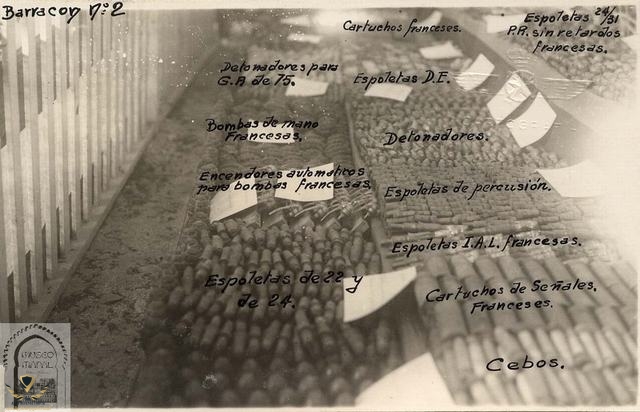 Barracon Nº2
Cartuchos franceses.
Espoletas 24/31
P.R. sin retardos
francesas.
Detonadores para
G.A de 75.
Espoletas D.E.
Bombas de mano
Francesas.
Detonadores.
Encendores automaticos
para bombas francesas.
Espoletas de percusión.
Espoletas I.A.L. francesas.
Espoletas de 22 y
de 24.
Cartuchos de Señales.
Franceses.
Cebos.
MUSEO